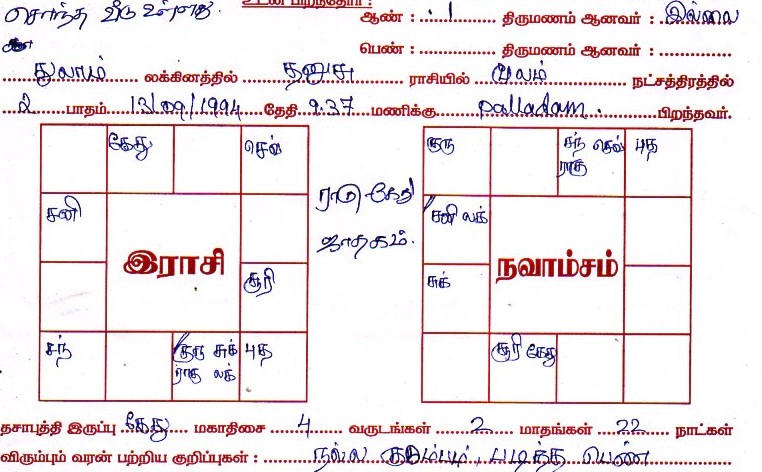 சொந்த வீடு உள்ளது. உடன் பிறந்தோர் :
ஆண் : 1 திருமணம் ஆனவர் : இல்லை
பெண் : திருமணம் ஆனவர் :
துலாம் லக்கினத்தில் தனுசு ராசியில் மூலம் நட்சத்திரத்தில்
2 பாதம் 13/09/1994 தேதி 9.37 மணிக்கு palladam. பிறந்தவர்.
கேது செவ்
சனி
இராசி
சூரி
சந் குரு சுக் புத
ராகு லக்
ராகு கேது
ஜாதகம்.
குரு சந் செவ் புத
ராகு
சனி லக்
நவாம்சம்
சுக்
சூரி கேது
தசாபுத்தி இருப்பு கேது மகாதிசை 4 வருடங்கள் 2 மாதங்கள் 22 நாட்கள்
விரும்பும் வரன் பற்றிய குறிப்புகள் : நல்ல குடும்பம், படித்த பெண்